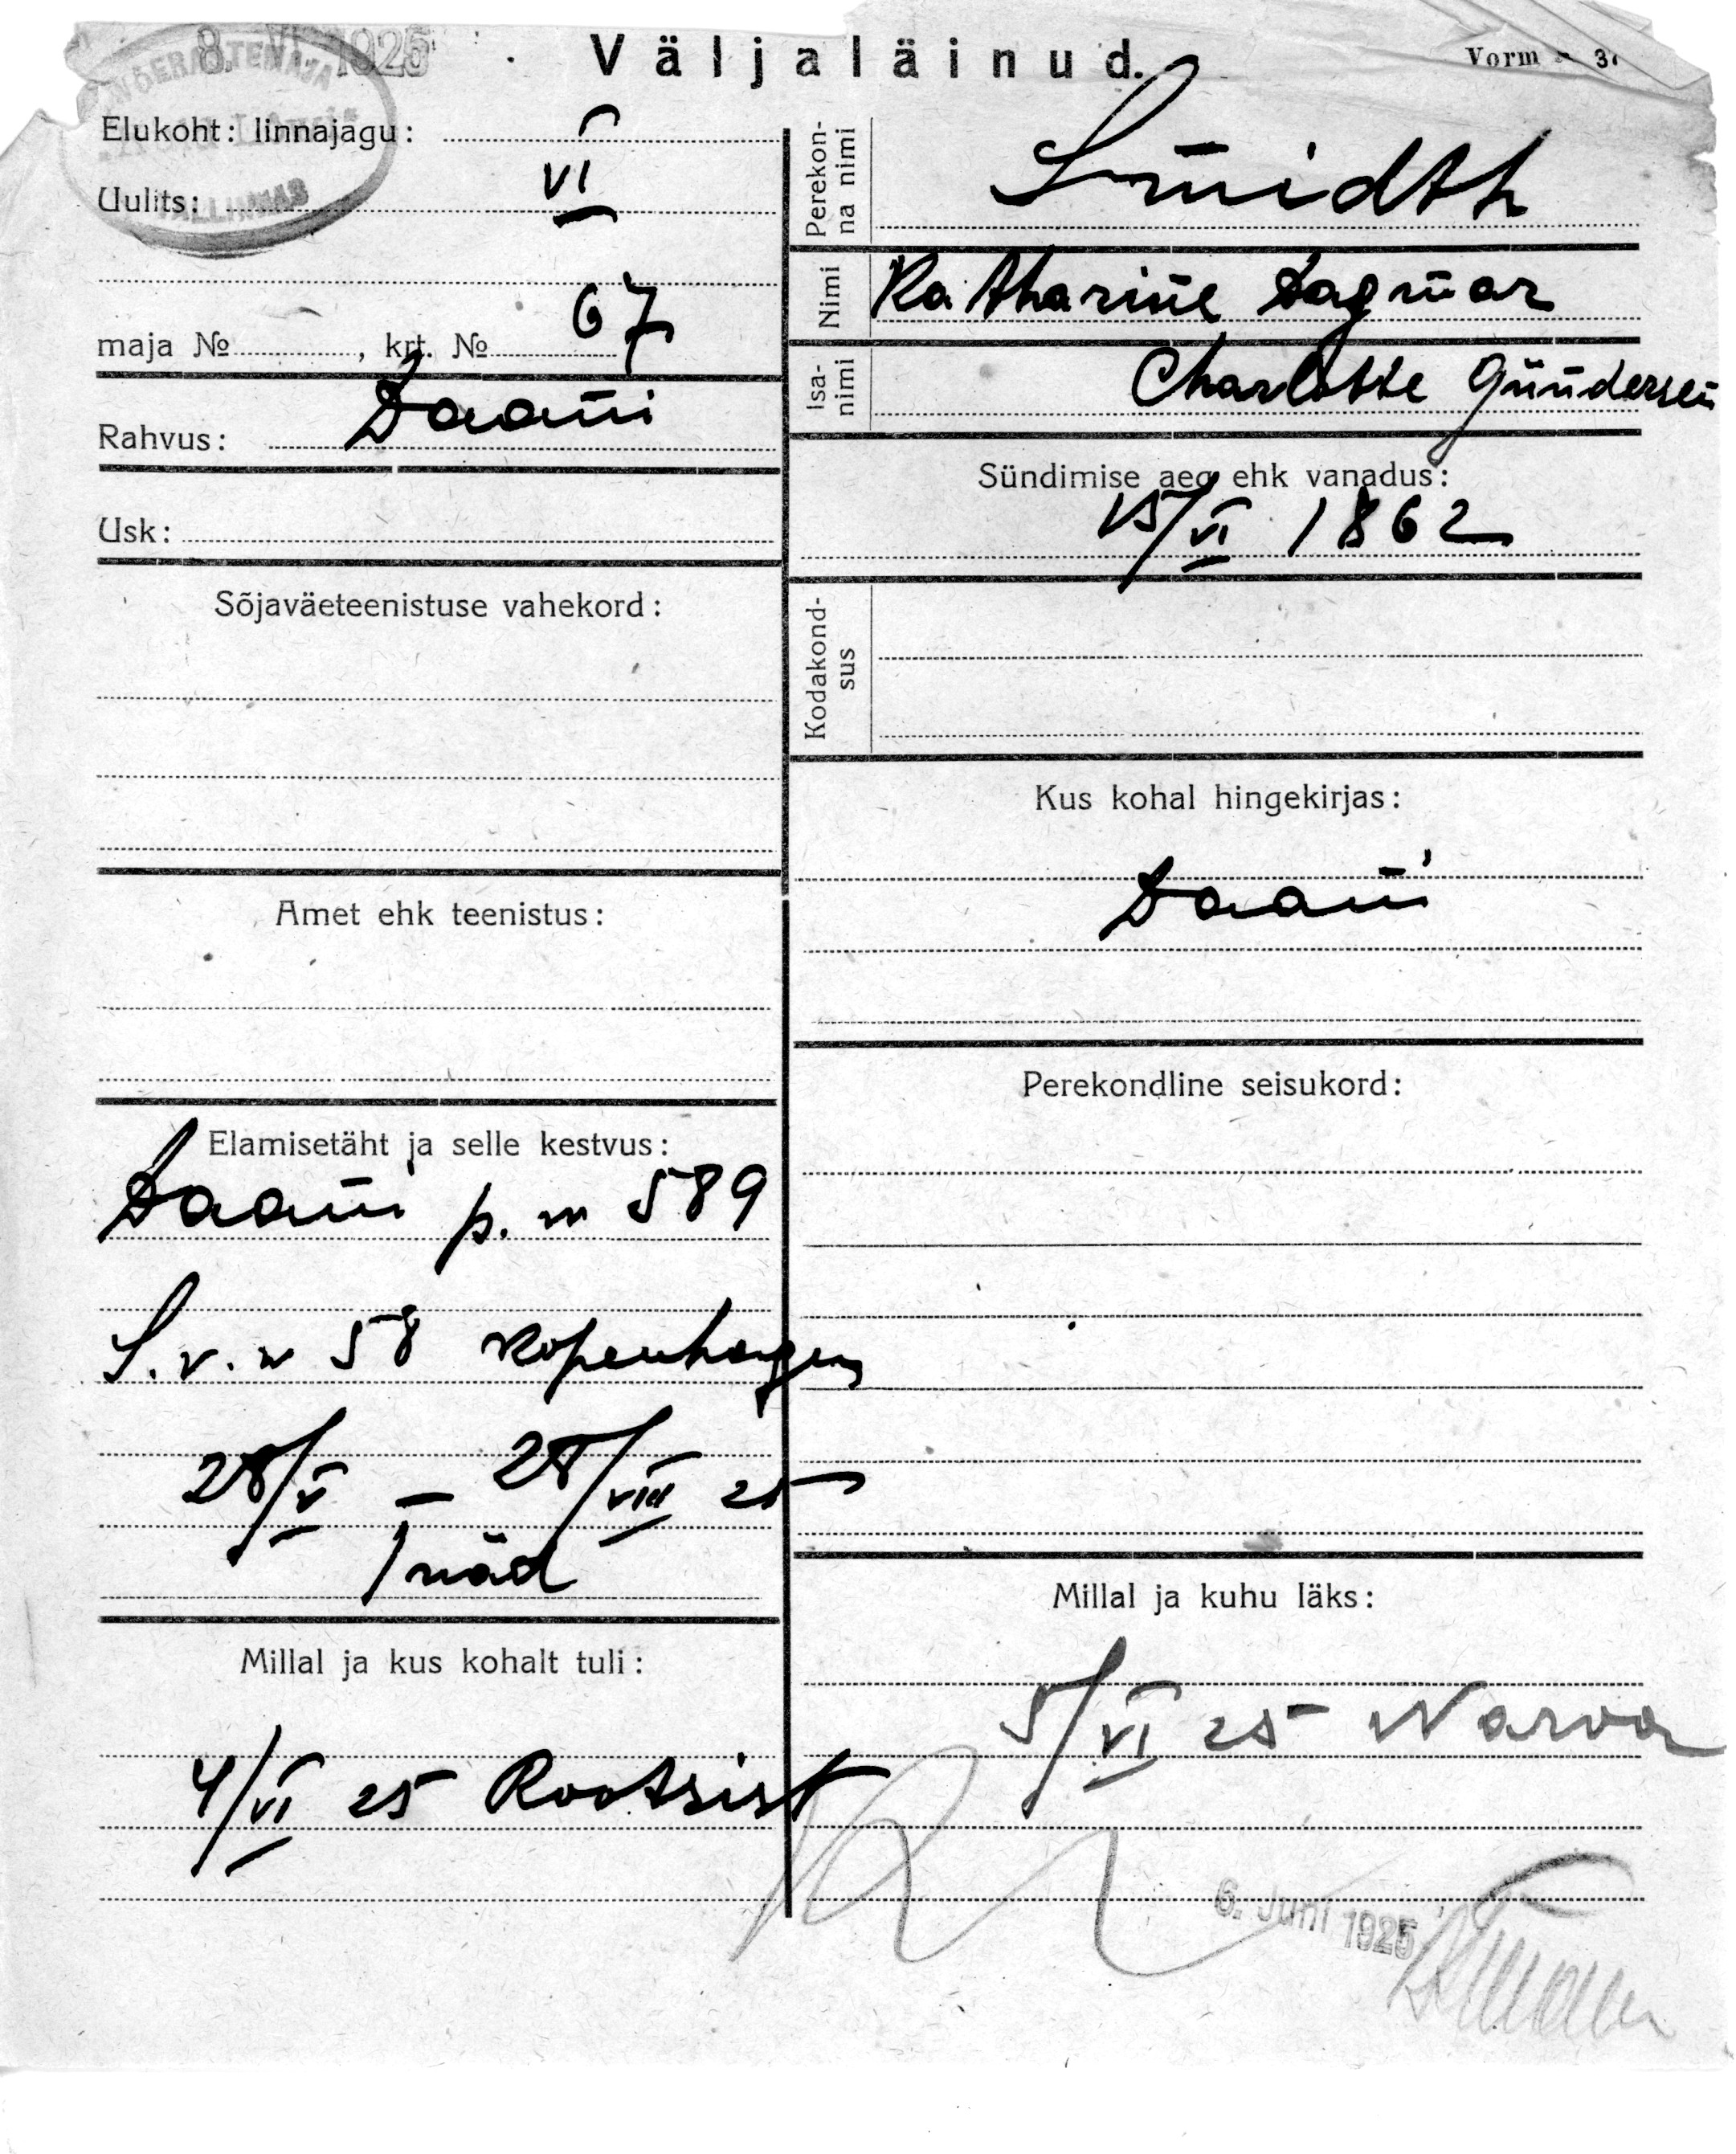 8. VI 1925
Väljaläinud.
Vorm
Elukoht: linnajagu:
VI
Uulits:
TALLINNAS
maja № , krt. № 67
Rahvus: Daani
Usk:
Sõjaväeteenistuse vahekord:
Amet ehk teenistus:
Elamisetäht ja selle kestvus:
Daani p. № 589
S.v. № 58 Kopenhagen
28/V – 28/VIII 25
1 näd
Millal ja kus kohalt tuli:
4/VI 25 Rootsist
Perekonna nimi
Smidth
Nimi
Katharine Dagmar
Isanimi
Charlotte Gündersen
Sündimise aeg ehk vanadus:
15/VI 1862
Kodakondsus
Kus kohal hingekirjas:
Daani
Perekondline seisukord:
Millal ja kuhu läks:
5/VI 25 Narva
6. Juni 1925